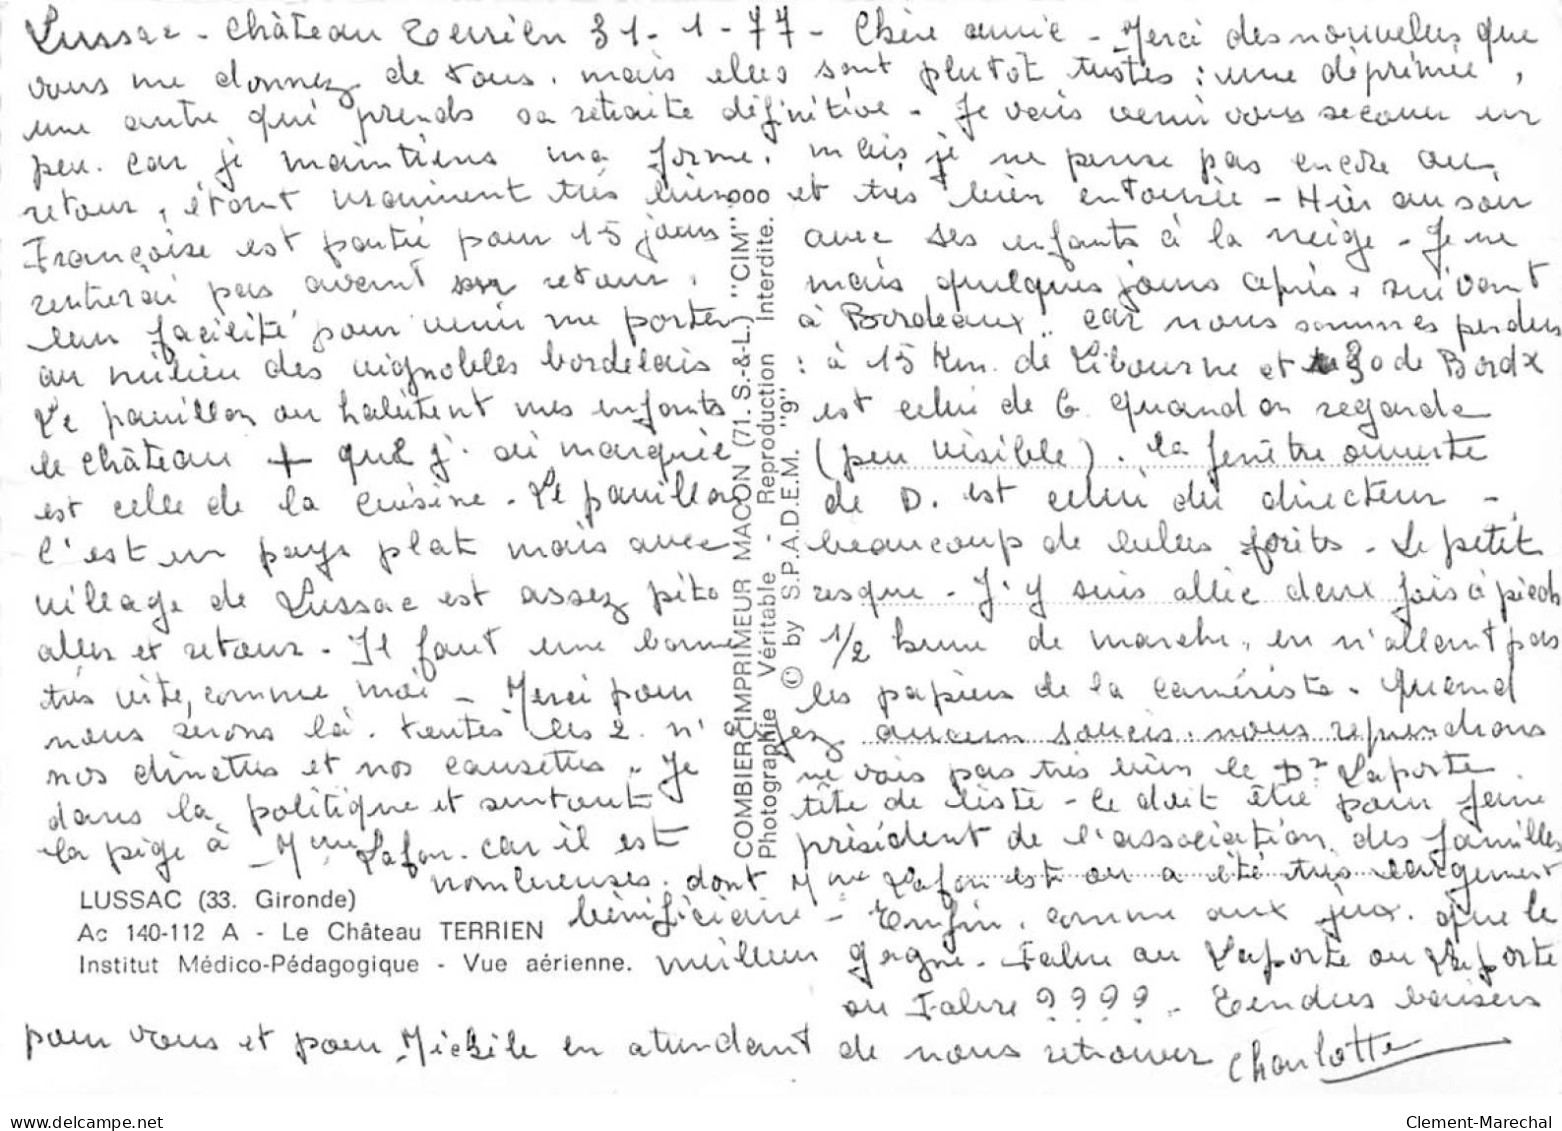 Lussac - Château Terrien 31-1-77 - Chère amie - Merci des nouvelles que
vous me donnez de tous, mais elles sont plutôt tristes : une déprimée,
une autre qui prends sa retraite définitive - Je vais venir vous secouer un
peu. car je maintiens ma forme. mais je ne pense pas encore au
retour, étant vraiment très bien et très bien entourée - Hier au soir
Françoise est partie pour 15 jours avec ses enfants à la neige - Je ne
rentrerai pas avant son retour, mais quelques jours après, suivant
leur facilité pour venir me porter à Bordeaux .. car nous sommes perdus
au milieu des vignobles bordelais : à 15 Km. de Libourne et 30 de Bordx
Le pavillon ou habitent mes enfants est celui de G. quand on regarde
le château + que j'ai marquée (peu visible). la fenêtre ouverte
est celle de la cuisine - Le pavillon de D. est celui du directeur -
C'est un pays plat mais avec beaucoup de belles forêts - Le petit
village de Lussac est assez pitoresque - J'y suis allée deux fois à pieds
aller et retour - Il faut une bonne 1/2 heure de marche, en n'allant pas
très vite, comme moi - Merci pour les papiers de la camériste - Quand
nous serons là. toutes les 2. n'ayez aucun soucis. nous reprendrons
nos dinettes et nos causettes - Je ne vois pas très bien le Dr Laporte
dans la politique et surtout tête de liste - ce doit être pour faire
la pige à Mme Lafon. car il est président de l'association des familles
nombreuses. dont Mme Lafon est ou a été très largement
bénificiaire - Enfin. comme aux jeux. que le
meilleur gagne - Fabre au Laporte ou Laporte
ou Fabre ???? - Tendres baisers
pour vous et pour Michèle en attendant de nous retrouver Charlotte
COMBIER IMPRIMEUR MACON (71. S.-&-L.) "CIM"
Photographie Véritable - Reproduction Interdite.
© by S.P.A.D.E.M. "9"
LUSSAC (33. Gironde)
Ac 140-112 A - Le Château TERRIEN
Institut Médico-Pédagogique - Vue aérienne.
www.delcampe.net
Clement-Marechal